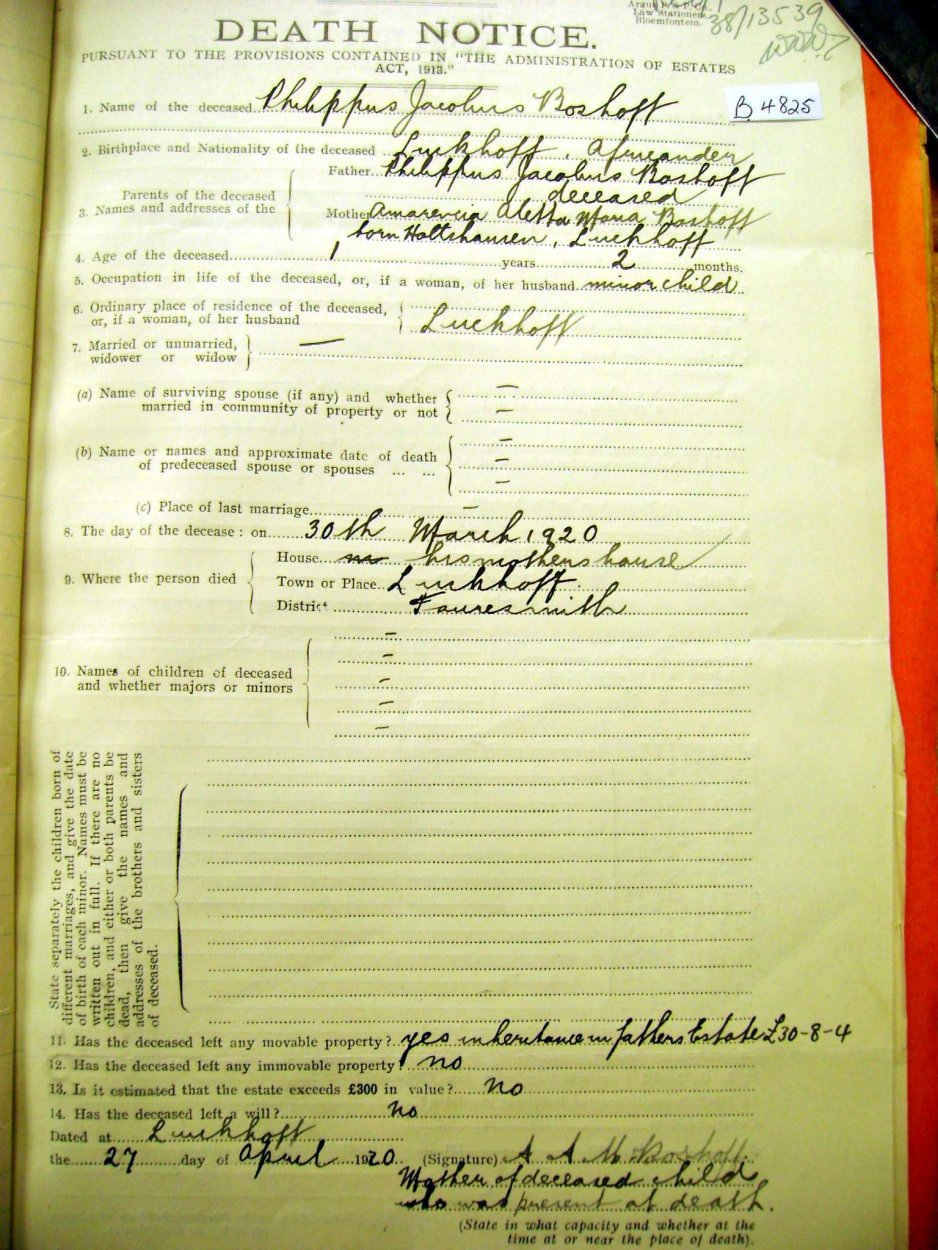 Law Stationers,
Bloemfontein.
38/13539
DEATH NOTICE.
PURSUANT TO THE PROVISIONS CONTAINED IN "THE ADMINISTRATION OF ESTATES
ACT, 1913."
B 4825
1. Name of the deceased Philippus Jacobus Boshoff
2. Birthplace and Nationality of the deceased Luckhoff. Africander
Father Philippus Jacobus Boshoff
deceased
Parents of the deceased
3. Names and addresses of the
Mother Aletta Maria Boshoff
born Holtshausen, Luckhoff
4. Age of the deceased 1 years 2 months.
5. Occupation in life of the deceased, or, if a woman, of her husband minor child
6. Ordinary place of residence of the deceased,
or, if a woman, of her husband
Luckhoff
7. Married or unmarried, —
widower or widow
(a) Name of surviving spouse (if any) and whether —
married in community of property or not —
(b) Name or names and approximate date of death —
of predeceased spouse or spouses ... ... —
—
(c) Place of last marriage —
8. The day of the decease : on 30th March 1920
House his mothers house
9. Where the person died Town or Place Luckhoff.
District Fauresmith
—
—
10. Names of children of deceased
and whether majors or minors —
—
—
State separately the children born of
different marriages, and give the date
of birth of each minor. Names must be
written out in full. If there are no
children, and either or both parents be
dead, then give the names and
addresses of the brothers and sisters
of deceased.
11. Has the deceased left any movable property? yes inheritance in fathers Estate £30-8-4
12. Has the deceased left any immovable property no
13. Is it estimated that the estate exceeds £300 in value? no
14. Has the deceased left a will? no
Dated at Luckhoff
the 27 day of April 1920 (Signature) A A M Boshoff.
Mother of deceased child
who was present at death.
(State in what capacity and whether at the
time at or near the place of death).